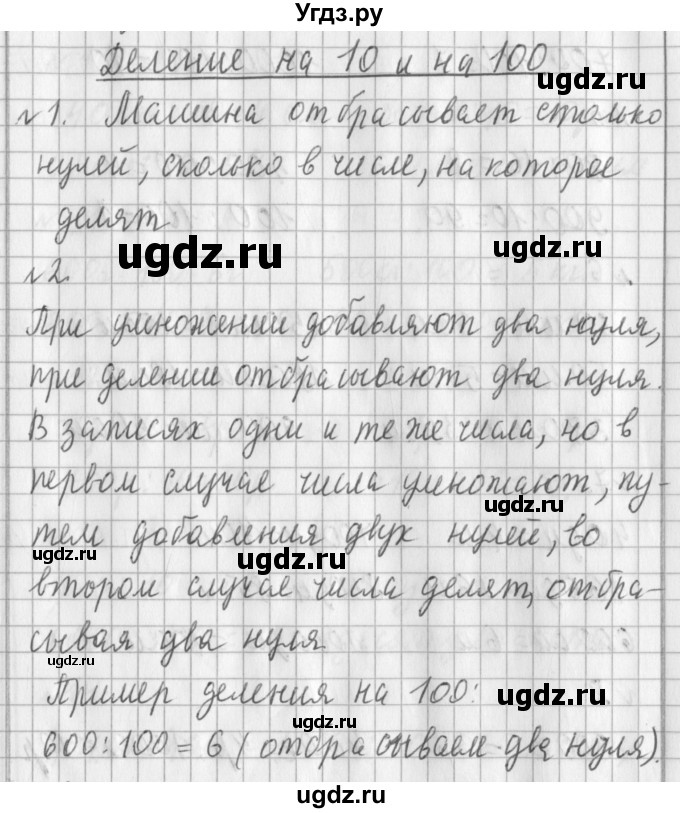 Угдз.ру
Деление на 10 и на 100
ugdz.ru
№1. Машина отбрасывает столько
нулей, сколько в числе, на которое
делят
ugdz.ru
ugdz.ru
№2.
При умножении добавляют два нуля,
при делении отбрасывают два нуля.
В записях одни и те же числа, но в
первом случае числа умножают, пу-
ugdz.ru
тем добавления двух нулей, во
ugdz.ru
ugdz.ru
втором случае числа делят, отбра-
сывая два нуля
ugdz.ru
Пример деления на 100:
ugdz.ru
ugdz.ru
600:100=6 (отбрасываем два нуля).
ugdz.ru